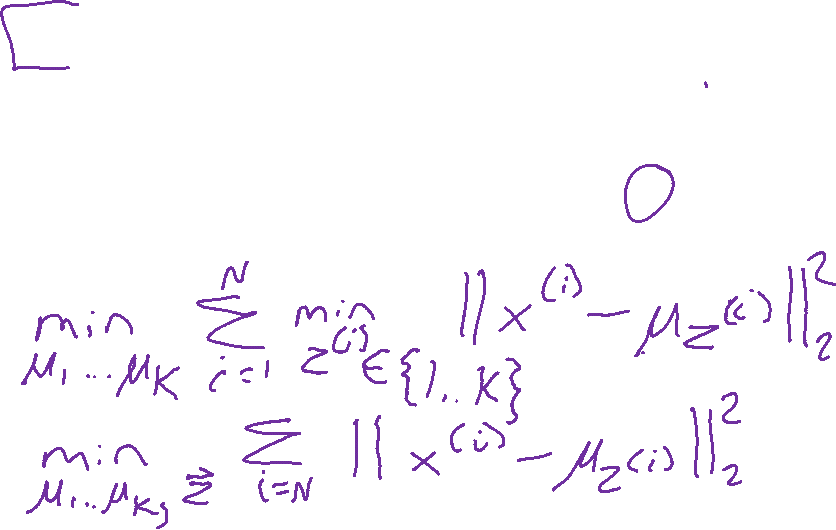 min_{μ_1...μ_K} ∑_{i=1}^{N} min_{z^{(i)}∈{1,..K}} ||x^{(i)} - μ_{z^{(i)}}||_2^2
min_{μ_1...μ_K, \vec{z}} ∑_{i=N} ||x^{(i)} - μ_{z^{(i)}}||_2^2